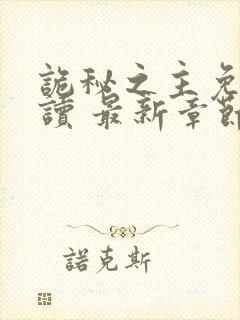 詭秘之主免
讀 最新章節
諾克斯